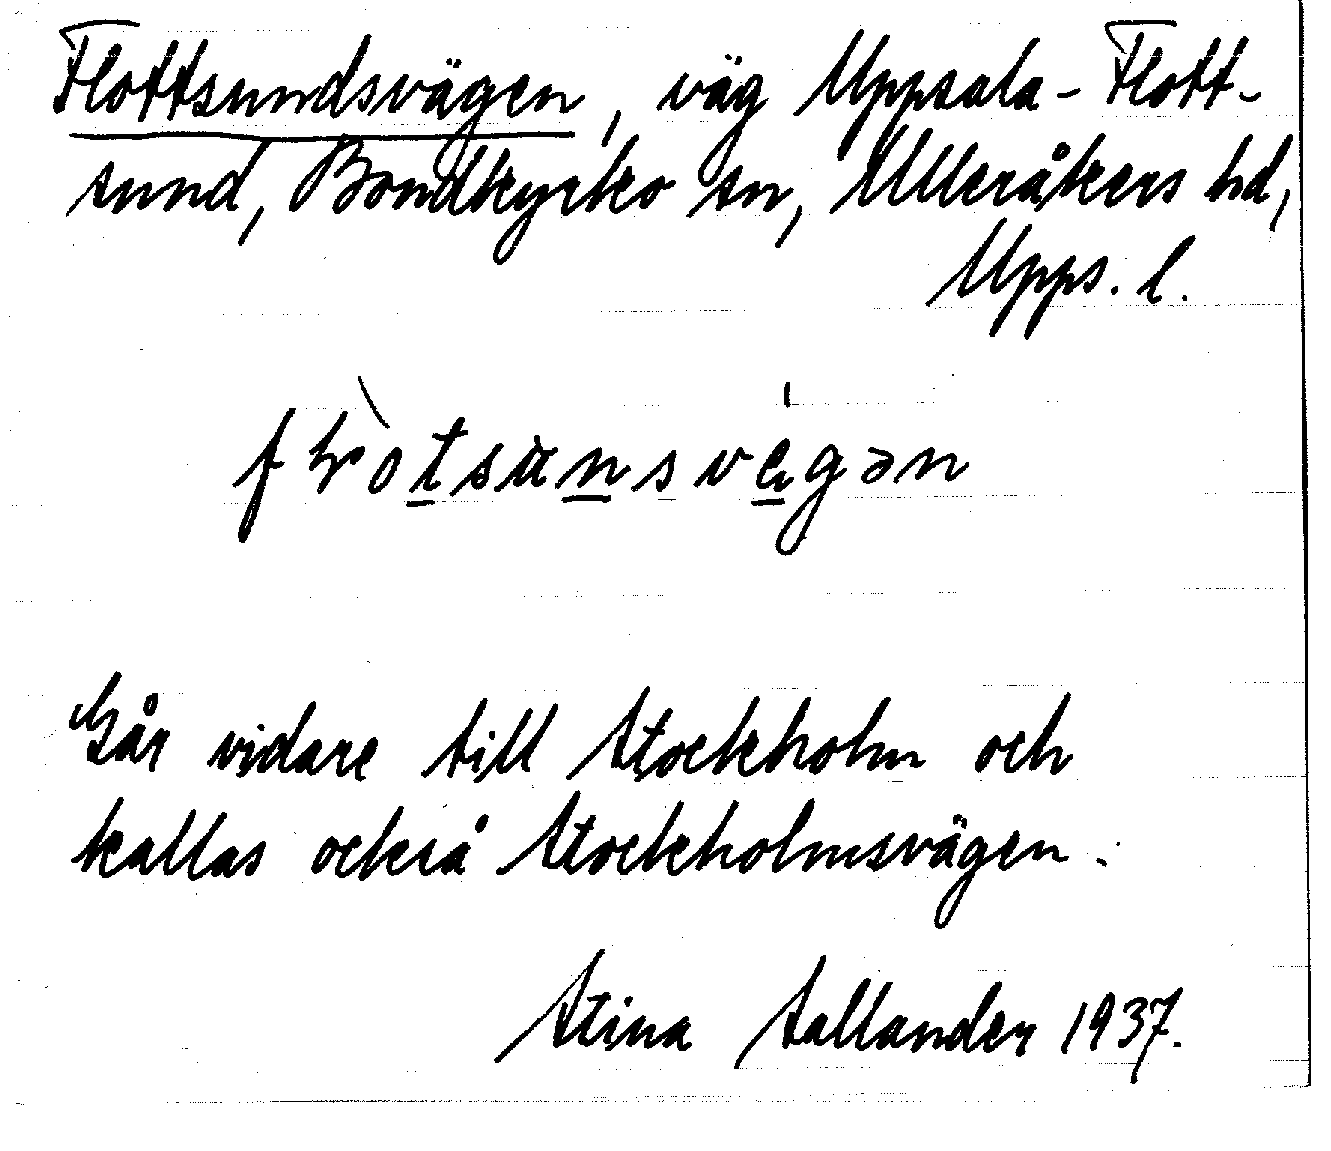 Flottsundsvägen, väg Uppsala-Flott-
sund, Bondkyrko sn, Ulleråkers hd,
Upps. l.
Går vidare till Stockholm och
kallas också Stockholmsvägen.
Stina Sallander 1937.